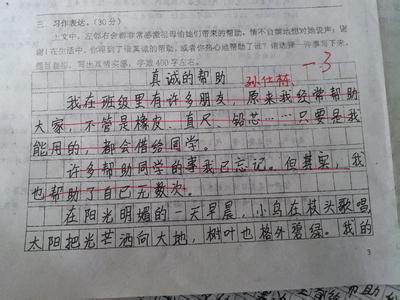 三、习作表达。(30分)
上文中,左邻右舍都非常感激祖母给她们带来的帮助,情不自禁地想对她说声:谢
谢!在生活中,你得到了谁真诚的帮助,或者你热心地帮助了谁?请选择一件事写下来。
题目自拟,写出真情实感,字数400字左右。
真诚的帮助
孙仕林
-3
我在班级里有许多朋友,原来我经常帮助
大家,不管是橡皮、直尺、铅芯……只要是我
能用的,都会借给同学。
许多帮助同学的事我已忘记。但其实,我
也帮助了自己无数次。
在阳光明媚的一天早晨,小鸟在枝头歌唱
太阳把光芒洒向大地,树叶也格外碧绿。我的
3